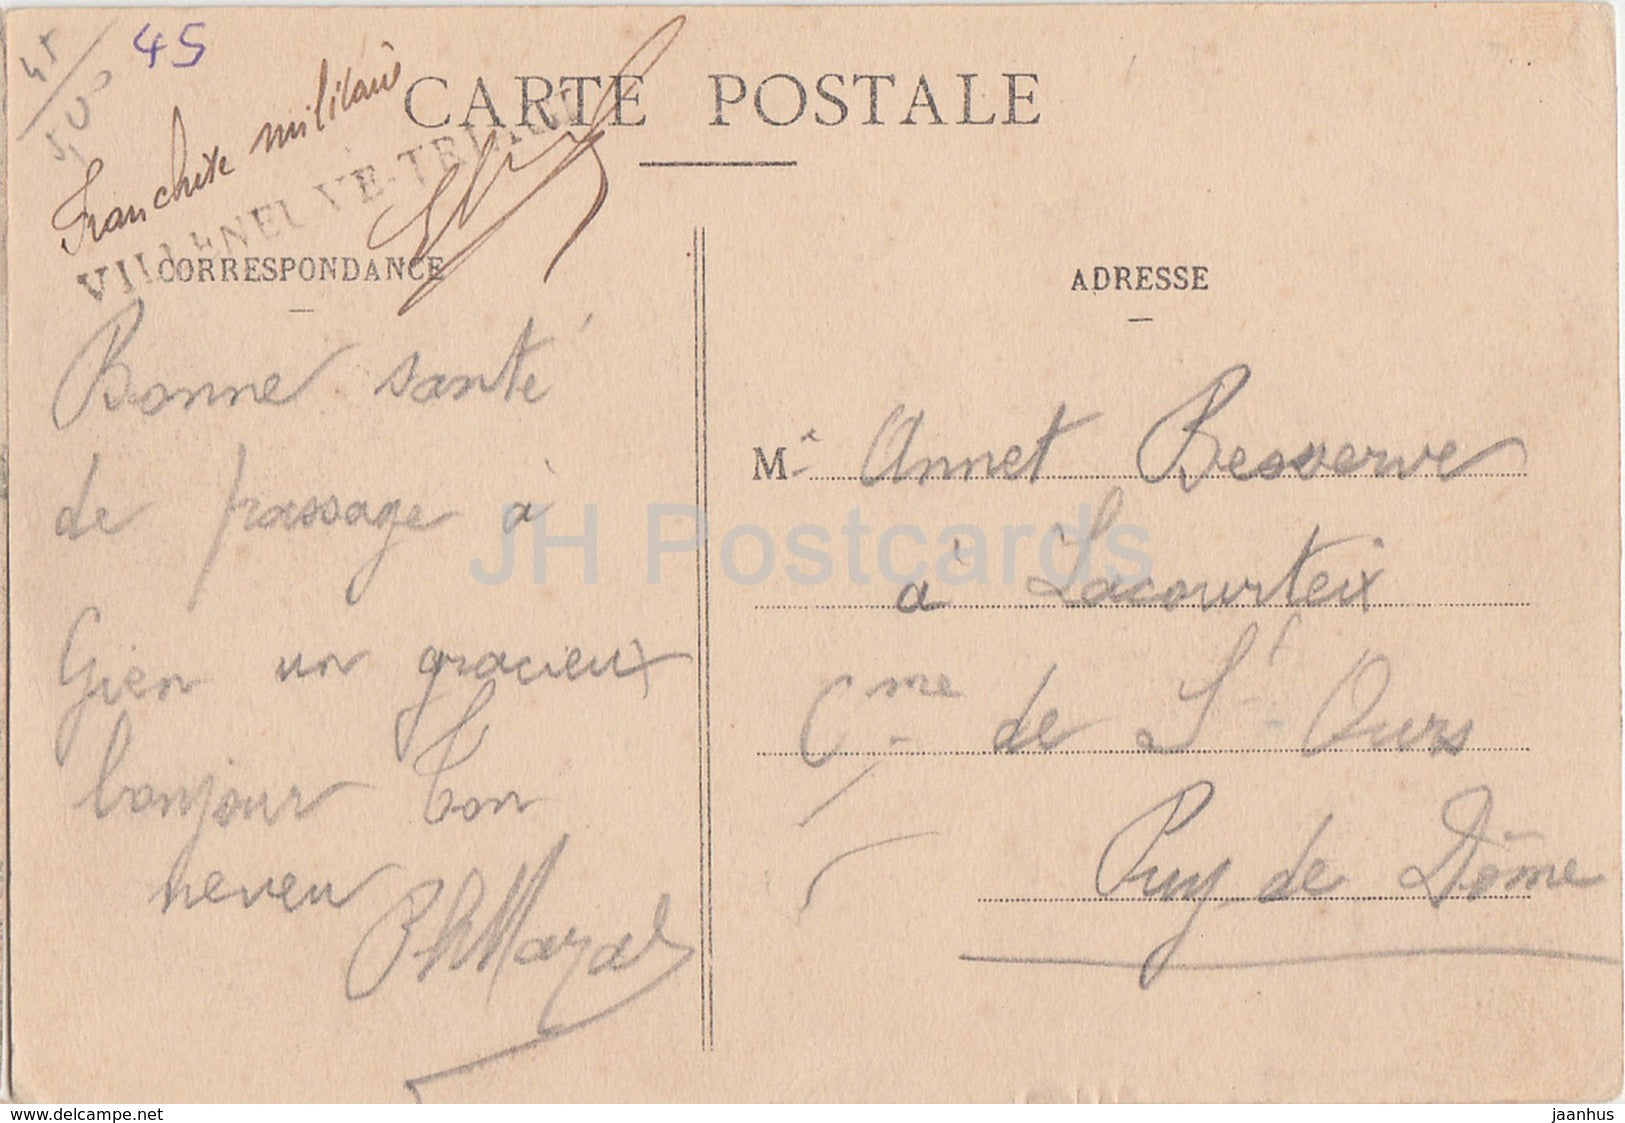 45
45
Franchise militaire
CARTE POSTALE
CORRESPONDANCE
Bonne santé
de passage à
Gien un gracieux
bonjour Ton
neveu Ph Mazal
ADRESSE
M Annet Besserve
à Lacourteix
Cme de St Ours
Puy de Dôme
JH Postcards
www.delcampe.net
jaanhus